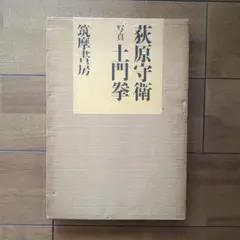 荻原守衛
写真 土門拳
筑摩書房